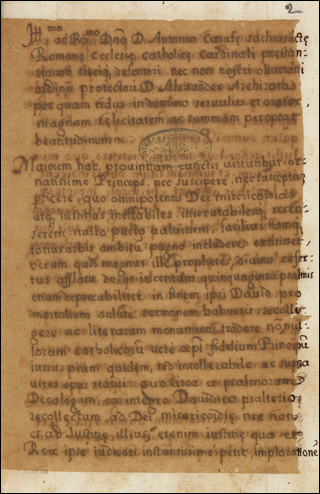 2
Ill.mo ac R.mo Dño D. Antonio Carafę sachrosactę
Romanę Ecclesię catholicę Cardinali prestan-
tissimo fideiq, defensori nec non nostri oliuetani
ordinis protectori D. Alexander
per quam fidus in domino seruulus et orator
magnam felicitatem ac summam peroptat
beatitudinem
Maiorem hac prouintiam cunctis uirtutibus or-
natissime Princeps, nec suscipere, nec susceptaȝ
pficere, quo omnipotentis Dei misericordias
atq, iustitias ineffabiles inscrutabilesq,
serem nullo pacto ualuissem, facilius namq,
totius orbis ambitu pugno includere
uerum quia magnus ille prophetes, diuino refer-
tus afflatu decies in centum quinquaginta psalmis
etiam deprecabilit in finem ipsi Dauid pro
mortalium salute sermonem habuerit recolli-
gere ac literarum monumentis tradere nonnul-
lorum catholicoru uere xp̄i fidelium Principū
iussu, pium quidem, sed intollerabile ac supra
uires opus statui: quo circa et psalmorum
Decalogum, ex integro Dauidico psalterio
recollectum ad Dei misericordię nec non
et ad Iustitię illius, etenim iustitię qua et
Rex ipse iudicari instantissime petit implorationē